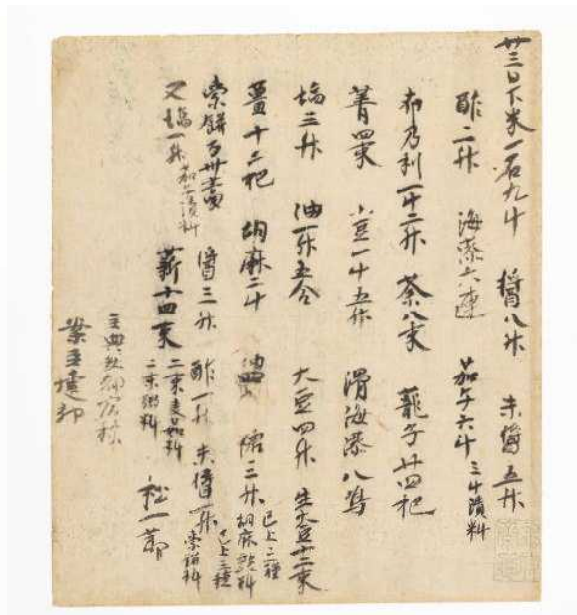 廿三日下米一石九斗 醤八升 未醤五升
酢二升 海藻六連 茄子六斗 三斗漬料
布乃利一斗二升 茶八束 蘢子廿四把
菁四束 小豆一斗五升 滑海藻八嶋
塩三升 油一升五合 大豆四升 生大豆十二束
薑十二把 胡麻二斗 塩三升 已上二種 胡麻 料
索餅百卌藁 醤三升 酢一升 未醤一升 已上三種 索餅料
又塩一升 茄子漬料 薪十四束 二束 料 二束粥料 松一
主典
案主建部